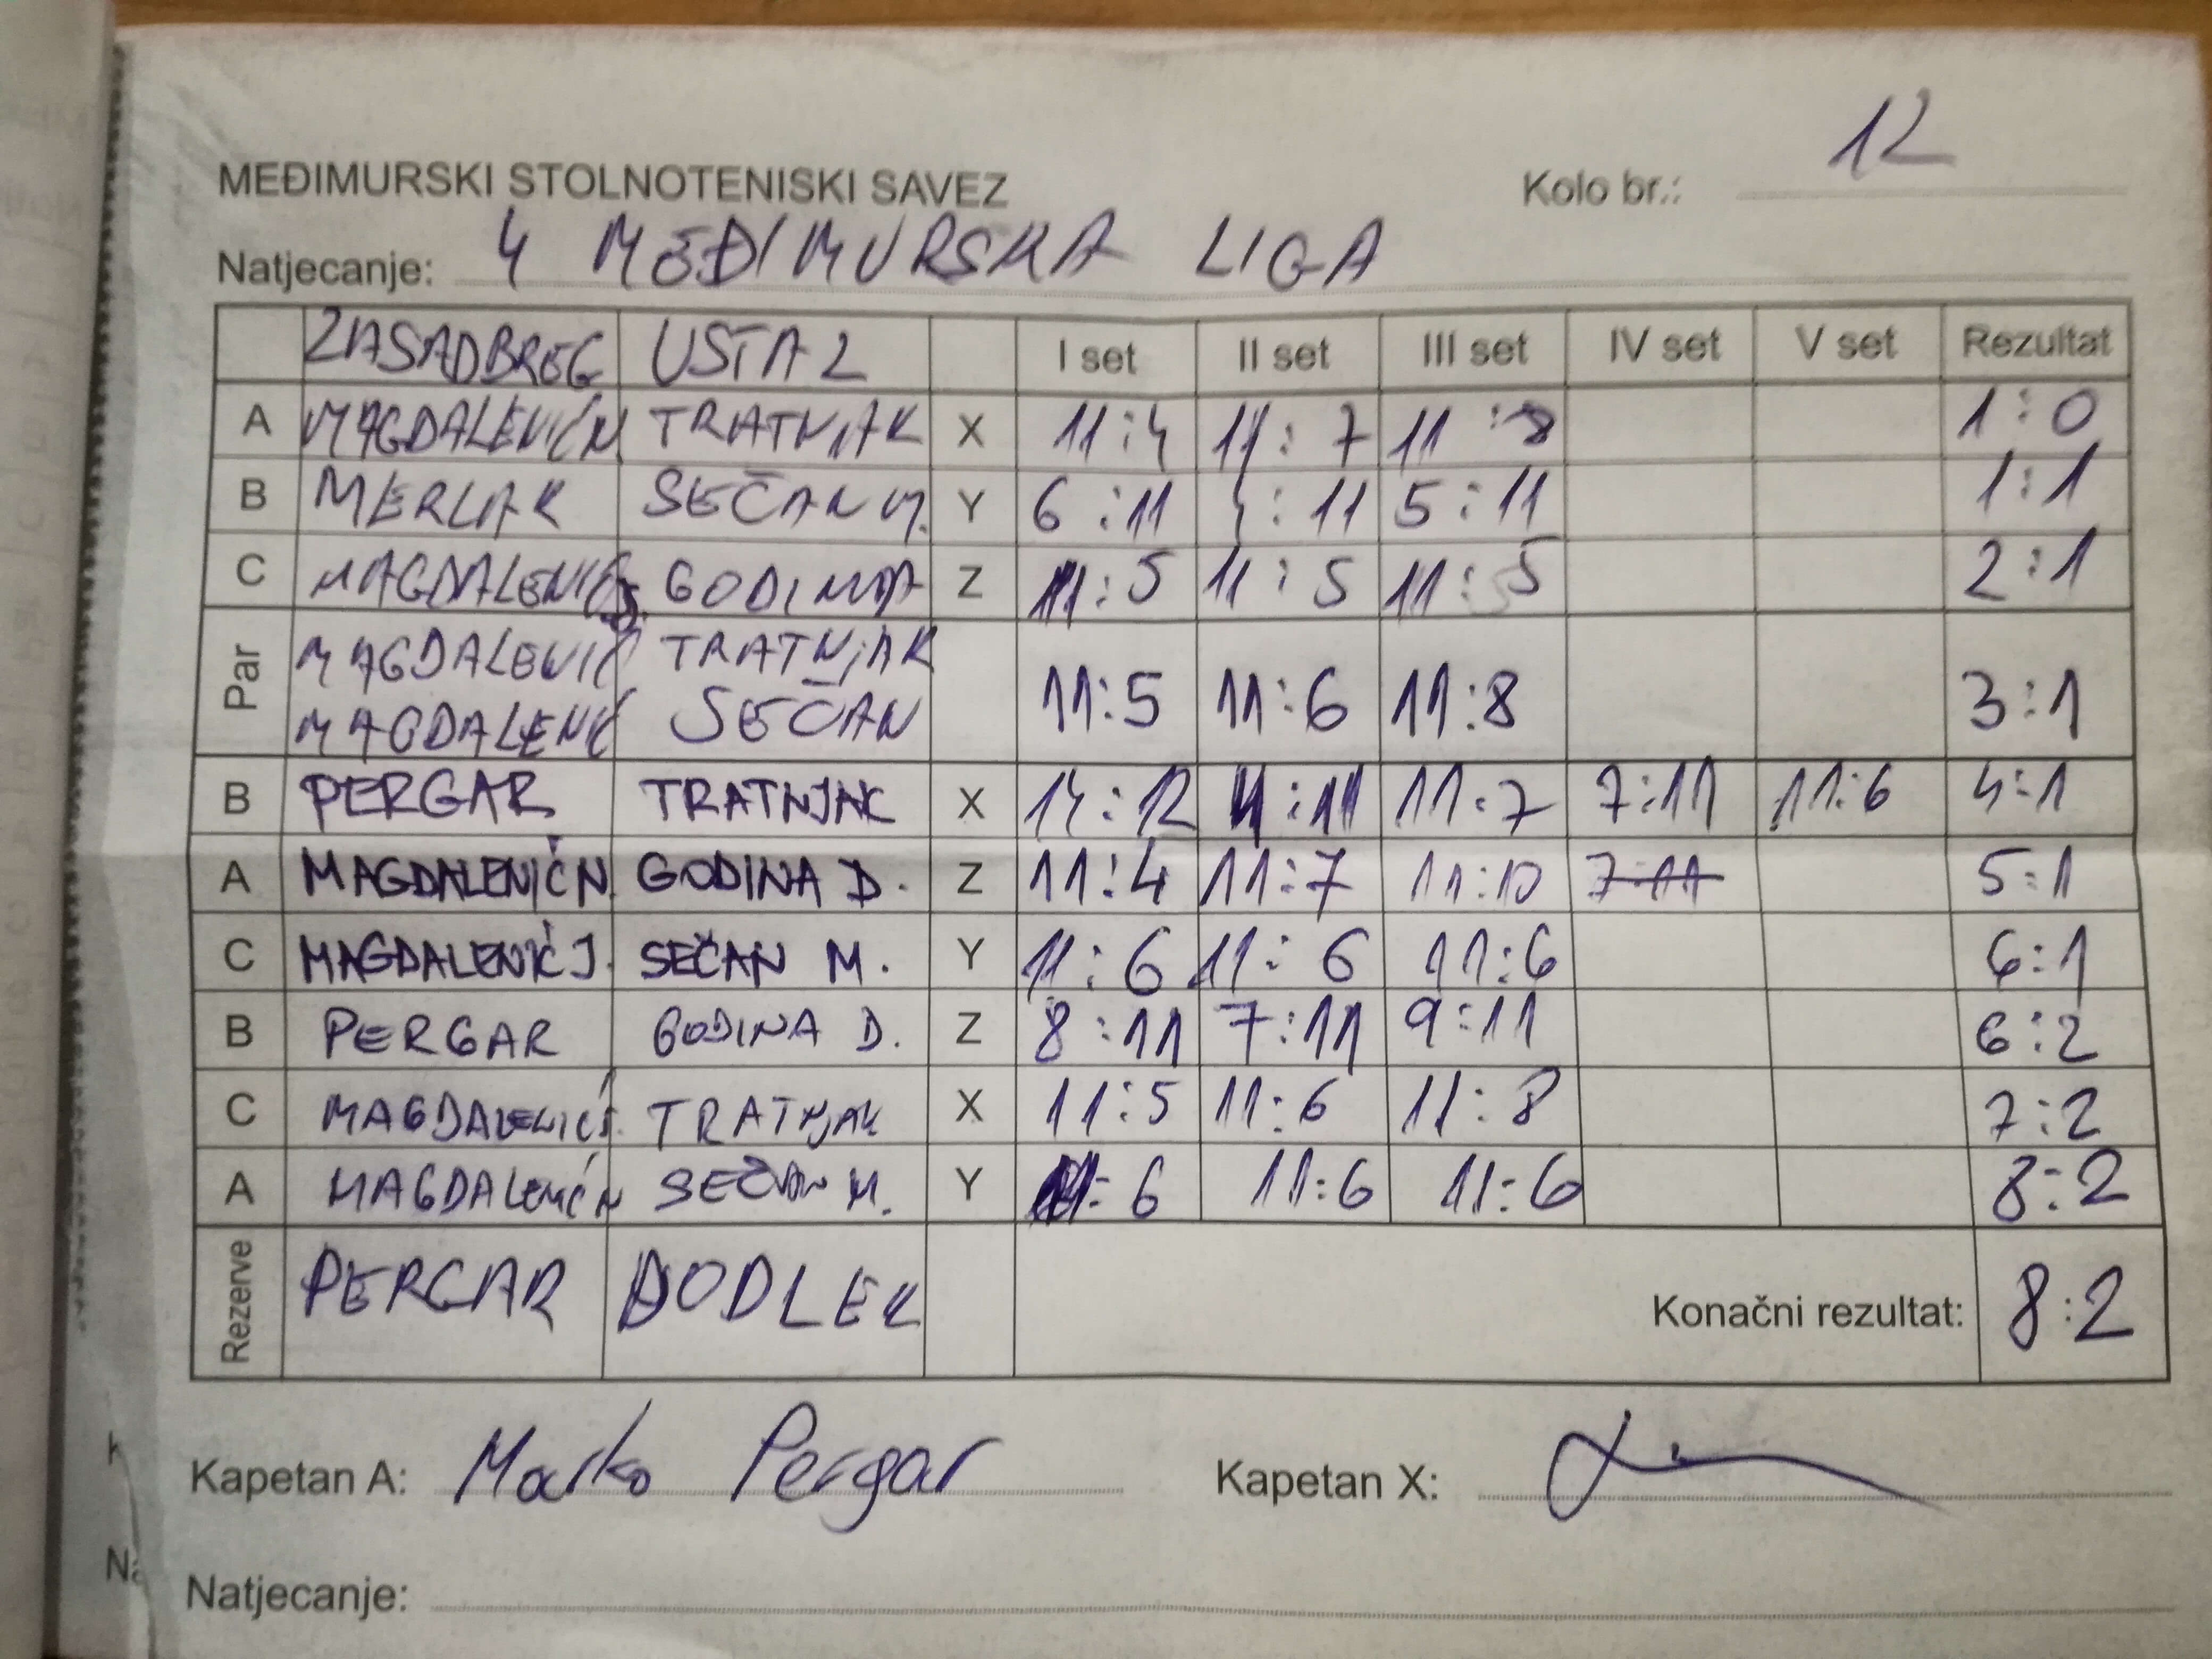 MEĐIMURSKI STOLNOTENISKI SAVEZ Kolo br.: 12
Natjecanje: 4 MEĐIMURSKA LIGA
ZASADBREG USTA 2 I set II set III set IV set V set Rezultat
A MAGDALENIĆ N TRATNJAK X 11:4 11:7 11:8 1:0
B MERLAK SEČAN M. Y 6:11 :11 5:11 1:1
C MAGDALENIĆ J. GODINA Z 11:5 11:5 11:5 2:1
Par MAGDALENIĆ TRATNJAK
MAGDALENIĆ SEČAN 11:5 11:6 11:8 3:1
B PERGAR TRATNJAK X 14:12 :11 11:7 7:11 11:6 4:1
A MAGDALENIĆ N. GODINA D. Z 11:4 11:7 11:10 7:11 5:1
C MAGDALENIĆ J. SEČAN M. Y 11:6 11:6 11:6 6:1
B PERGAR GODINA D. Z 8:11 7:11 9:11 6:2
C MAGDALENIĆ J. TRATNJAK X 11:5 11:6 11:8 7:2
A MAGDALENIĆ N SEČAN M. Y 11:6 11:6 11:6 8:2
Rezerve PERGAR DODLEK Konačni rezultat: 8:2
Kapetan A: Marko Pergar Kapetan X:
Natjecanje: